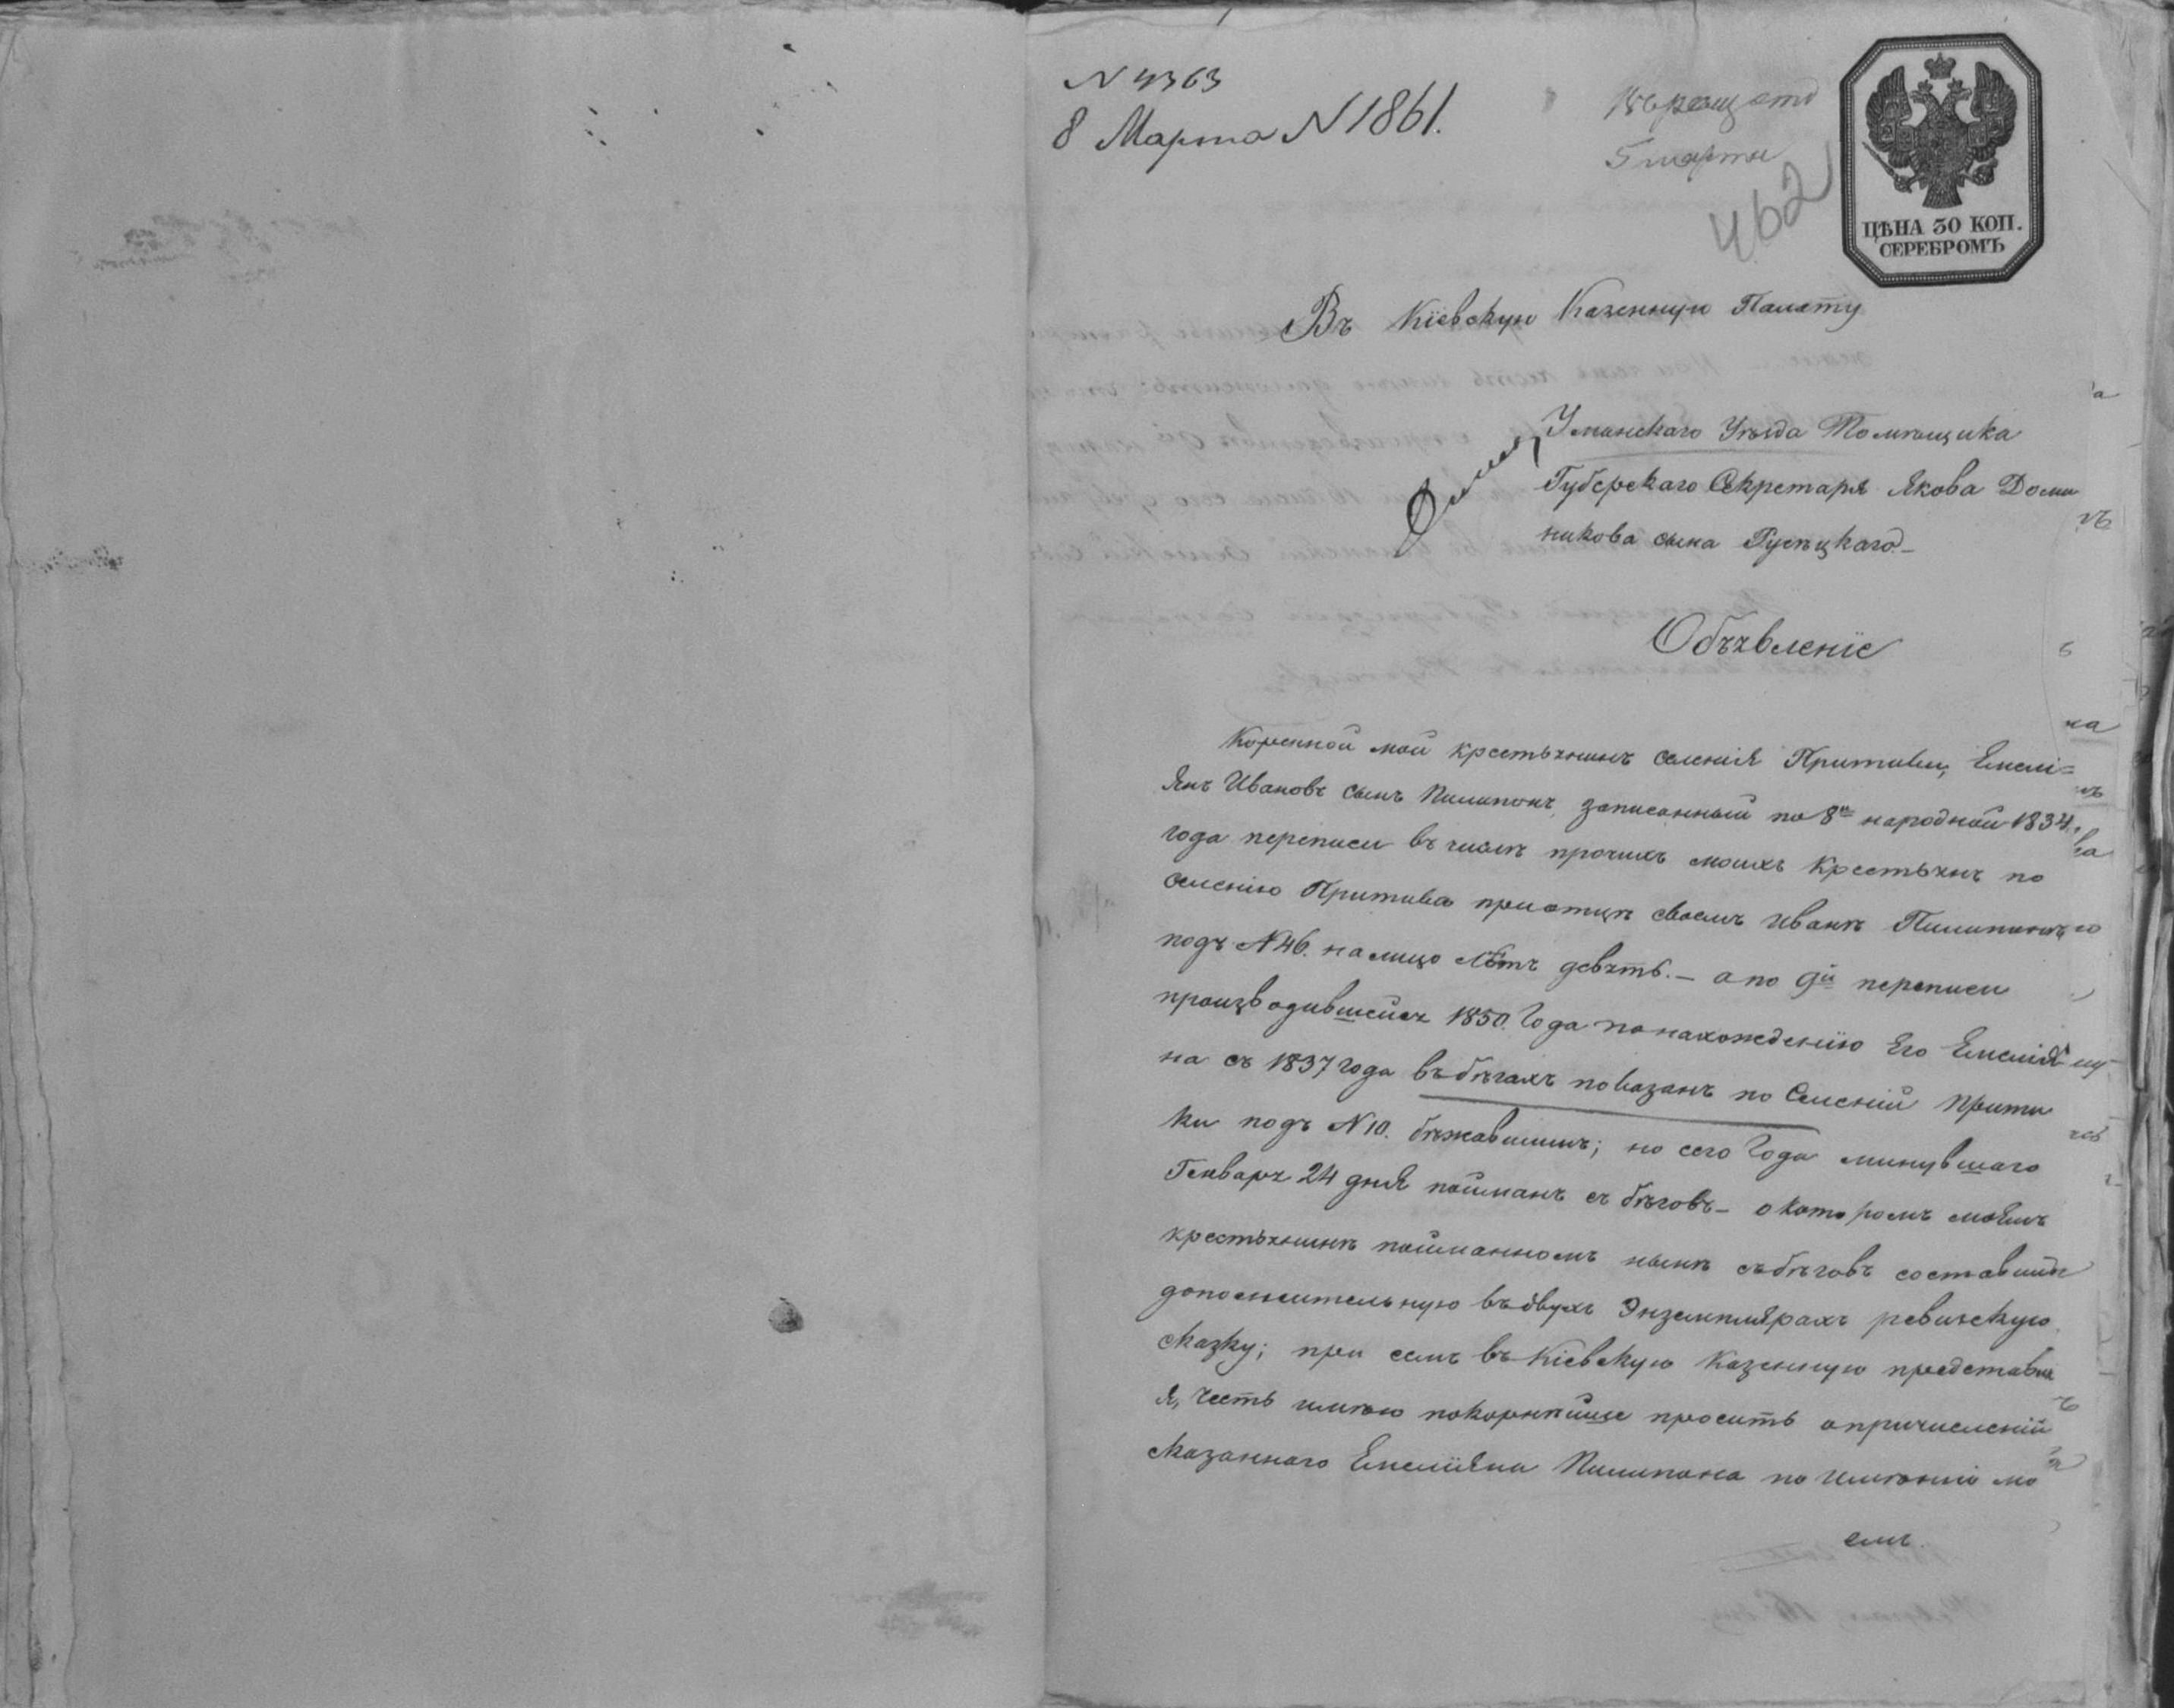 N 4363
8 Марта N 1861.
5 марта
462
ЦѢНА 30 КОП.
СЕРЕБРОМЪ
Въ Кіевскую Казенную Палату
Уманскаго Уѣзда Помѣщика
Губерскаго Секретаря Якова Доми
никова сына Русѣцкаго
Объявленіе
Коренной мой крестьянинъ селенія Притики, Емелі=
янъ Ивановъ сынъ Пилипонъ, записанный по 8й народной 1834.
года переписи въ числѣ прочихъ моихъ крестьянъ по
селенію Притика при отцѣ своемъ Иванѣ Пилипонѣ
подъ N 46. на лицо лѣтъ девять. – а по 9й переписи
производившейся 1850. Года по нахожденію Его Емелія
на съ 1837 года въ бѣгахъ показанъ по Селеній Прити
ки подъ N 10. бѣжавшимъ; но сего Года минувшаго
Генваря 24 дня пойманъ съ бѣговъ – о которомъ моемъ
крестьянинѣ пойманномъ нынѣ съ бѣговъ составивъ
дополнительную въ двухъ Экземплярахъ ревизскую
сказку; при семъ въ Кіевскую Казенную представля
я, честь имѣю покорнѣйше просить о причисленій
сказаннаго Емеліяна Пилипона по имѣнію мо
емъ